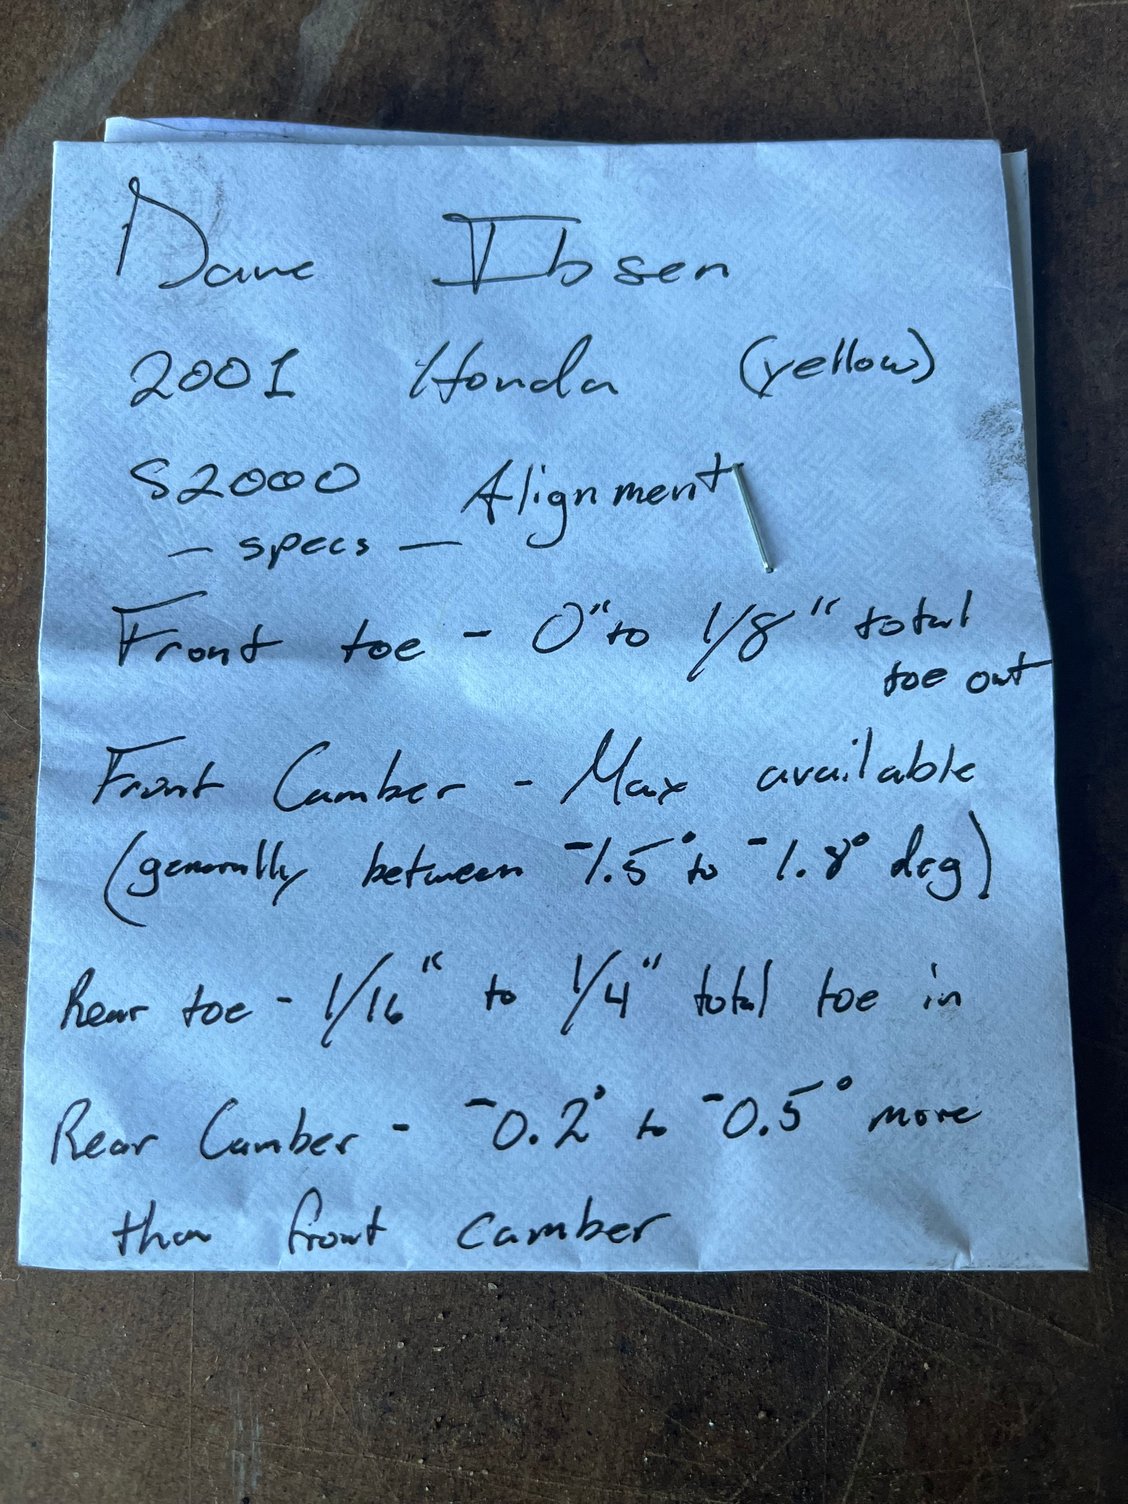 Dave Ibsen
2001 Honda (yellow)
S2000 Alignment
— specs —
Front toe - 0" to 1/8" total
toe out
Front Camber - Max available
(generally between -1.5° to -1.8° deg)
Rear toe - 1/16" to 1/4" total toe in
Rear Camber - -0.2° to -0.5° more
than front camber